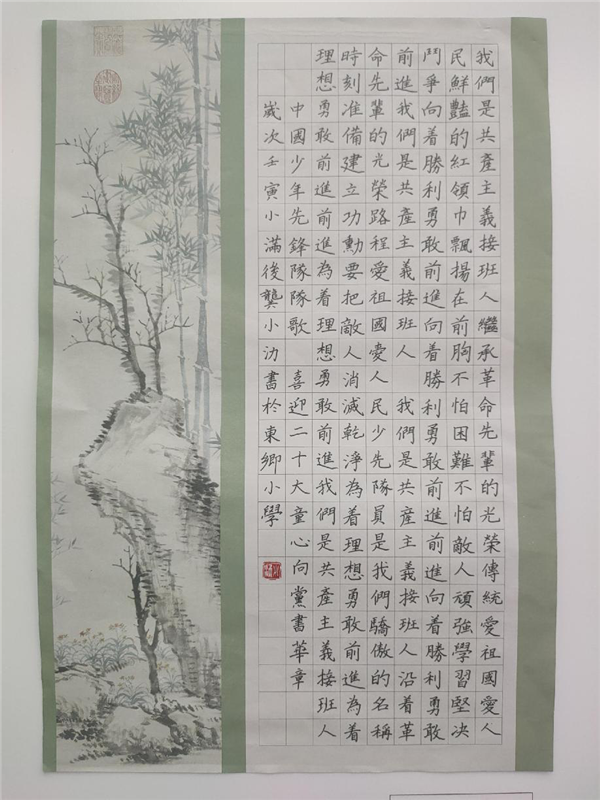 我們是共產主義接班人繼承革命先輩的光榮傳統愛祖國愛人
民鮮豔的紅領巾飄揚在前胸不怕困難不怕敵人頑強學習堅決
鬥爭向着勝利勇敢前進向着勝利勇敢前進前進向着勝利勇敢
前進我們是共產主義接班人 我們是共產主義接班人沿着革
命先輩的光榮路程愛祖國愛人民少先隊員是我們驕傲的名稱
時刻准備建立功勳要把敵人消滅乾淨為着理想勇敢前進為着
理想勇敢前進前進為着理想勇敢前進我們是共產主義接班人
中國少年先鋒隊隊歌 喜迎二十大童心向黨書華章
歲次壬寅小滿後龔小書於東鄉小學